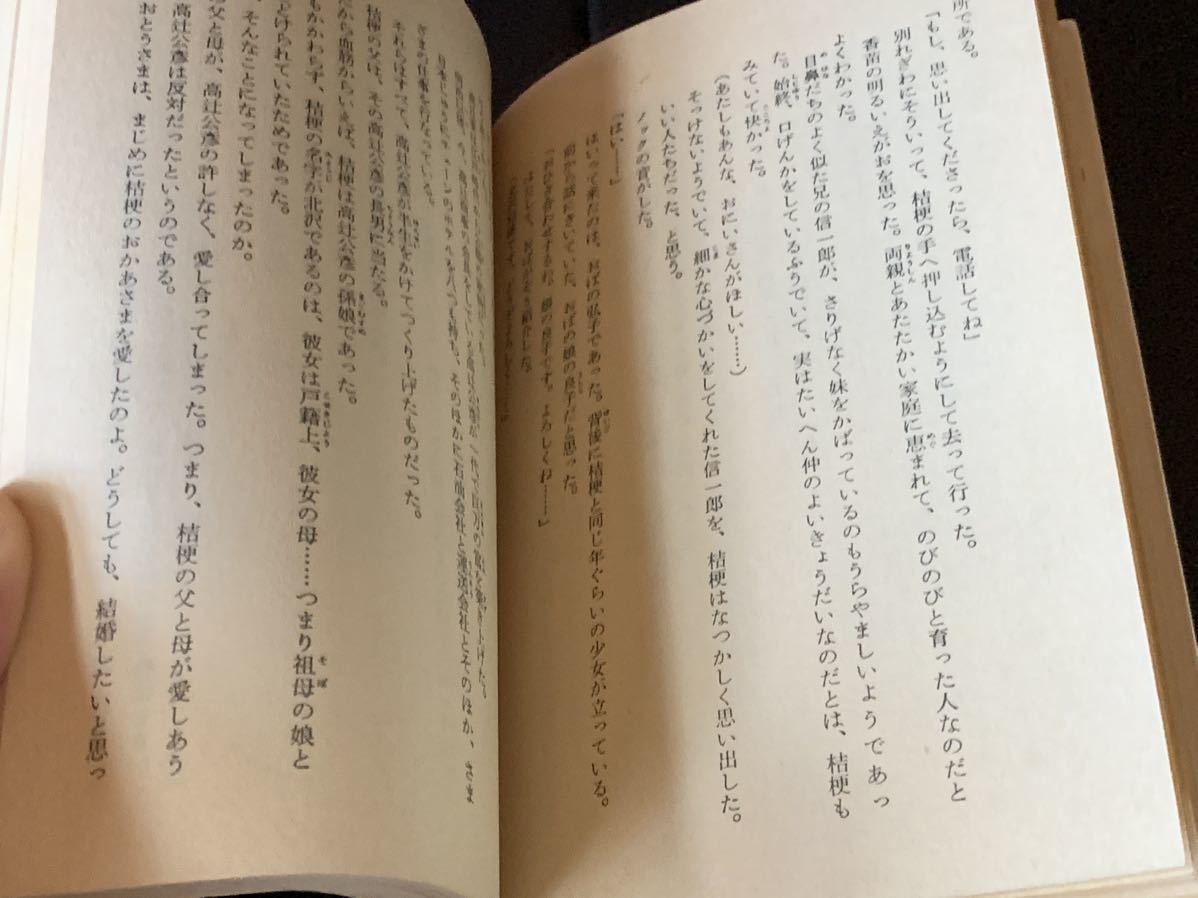 所である。
「もし、思い出してくださったら、電話してね」
別れぎわにそういって、桔梗の手へ押し込むようにして去って行った。
香苗の明るいえがおを思った。両親とあたたかい家庭に恵まれて、のびのびと育った人なのだと
よくわかった。
目鼻だちのよく似た兄の信一郎が、さりげなく妹をかばっているのもうらやましいようであっ
た。始終、口げんかをしているふうでいて、実はたいへん仲のよいきょうだいなのだとは、桔梗も
みていて快かった。
(あたしもあんな、おにいさんがほしい……)
そっけないようでいて、細かな心づかいをしてくれた信一郎を、桔梗はなつかしく思い出した。
いい人たちだった、と思う。
ノックの音がした。
「はい……」
はいって来たのは、おばの弘子であった。背後に桔梗と同じ年ぐらいの少女が立っている。
前から話にきいていた、おばの娘の良子だと思った。
「おひき合わせするわ。娘の良子です。よろしくね……」
はたして、おばがそう紹介した。
日本じゅうにチェーンのホテルを八つも持ち、そのほかに石油会社と運送会社とそのほか、さま
ざまの仕事を行なっている。
それらはすべて、高辻公彦が半生をかけてつくり上げたものだった。
桔梗の父は、その高辻公彦の長男に当たる。
だから血筋からいえば、桔梗は高辻公彦の孫娘であった。
もかかわらず、桔梗の名字が北沢であるのは、彼女は戸籍上、彼女の母……つまり祖母の娘と
上げられていたためであった。
、そんなことになってしまったのか。
の父と母が、高辻公彦の許しなく、愛し合ってしまった。つまり、桔梗の父と母が愛しあう
高辻公彦は反対だったというのである。
おとうさまは、まじめに桔梗のおかあさまを愛したのよ。どうしても、結婚したいと思っ